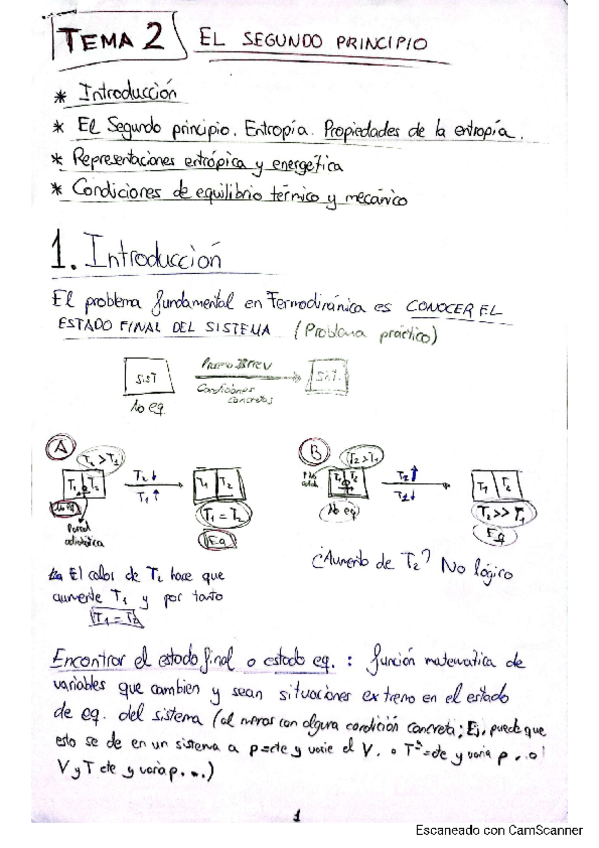 TEMA 2 EL SEGUNDO PRINCIPIO
* Introducción
* El Segundo principio. Entropía. Propiedades de la entropía.
* Representaciones entrópica y energética
* Condiciones de equilibrio térmico y mecánico
1. Introducción
El problema fundamental en Termodinámica es CONOCER EL
ESTADO FINAL DEL SISTEMA (Problema práctico)
SIST Proceso IRREV SIST.
No eq. Condiciones
concretas
A T2 > T1
T1 T2 T2 ↓ T1 T2
T1 ↑
No eq T1 = T2
Pared Eq
adiabática
B T2 > T1
T1 T2 T2 ↑ T1 T2
T2 ↓
No eq T2 >> T1
Eq
El calor de T2 hace que
aumente T1 y por tanto
T1 = T2
¿Aumento de T2? No lógico
Encontrar el estado final o estado eq. : función matemática de
variables que cambien y sean situaciones extremo en el estado
de eq. del sistema (al menos con alguna condición concreta; Ej, puede que
esto se de en un sistema a p=cte y varíe el V. o T=cte y varía p . . o
V y T cte y varía p. ...)
1
Escaneado con CamScanner